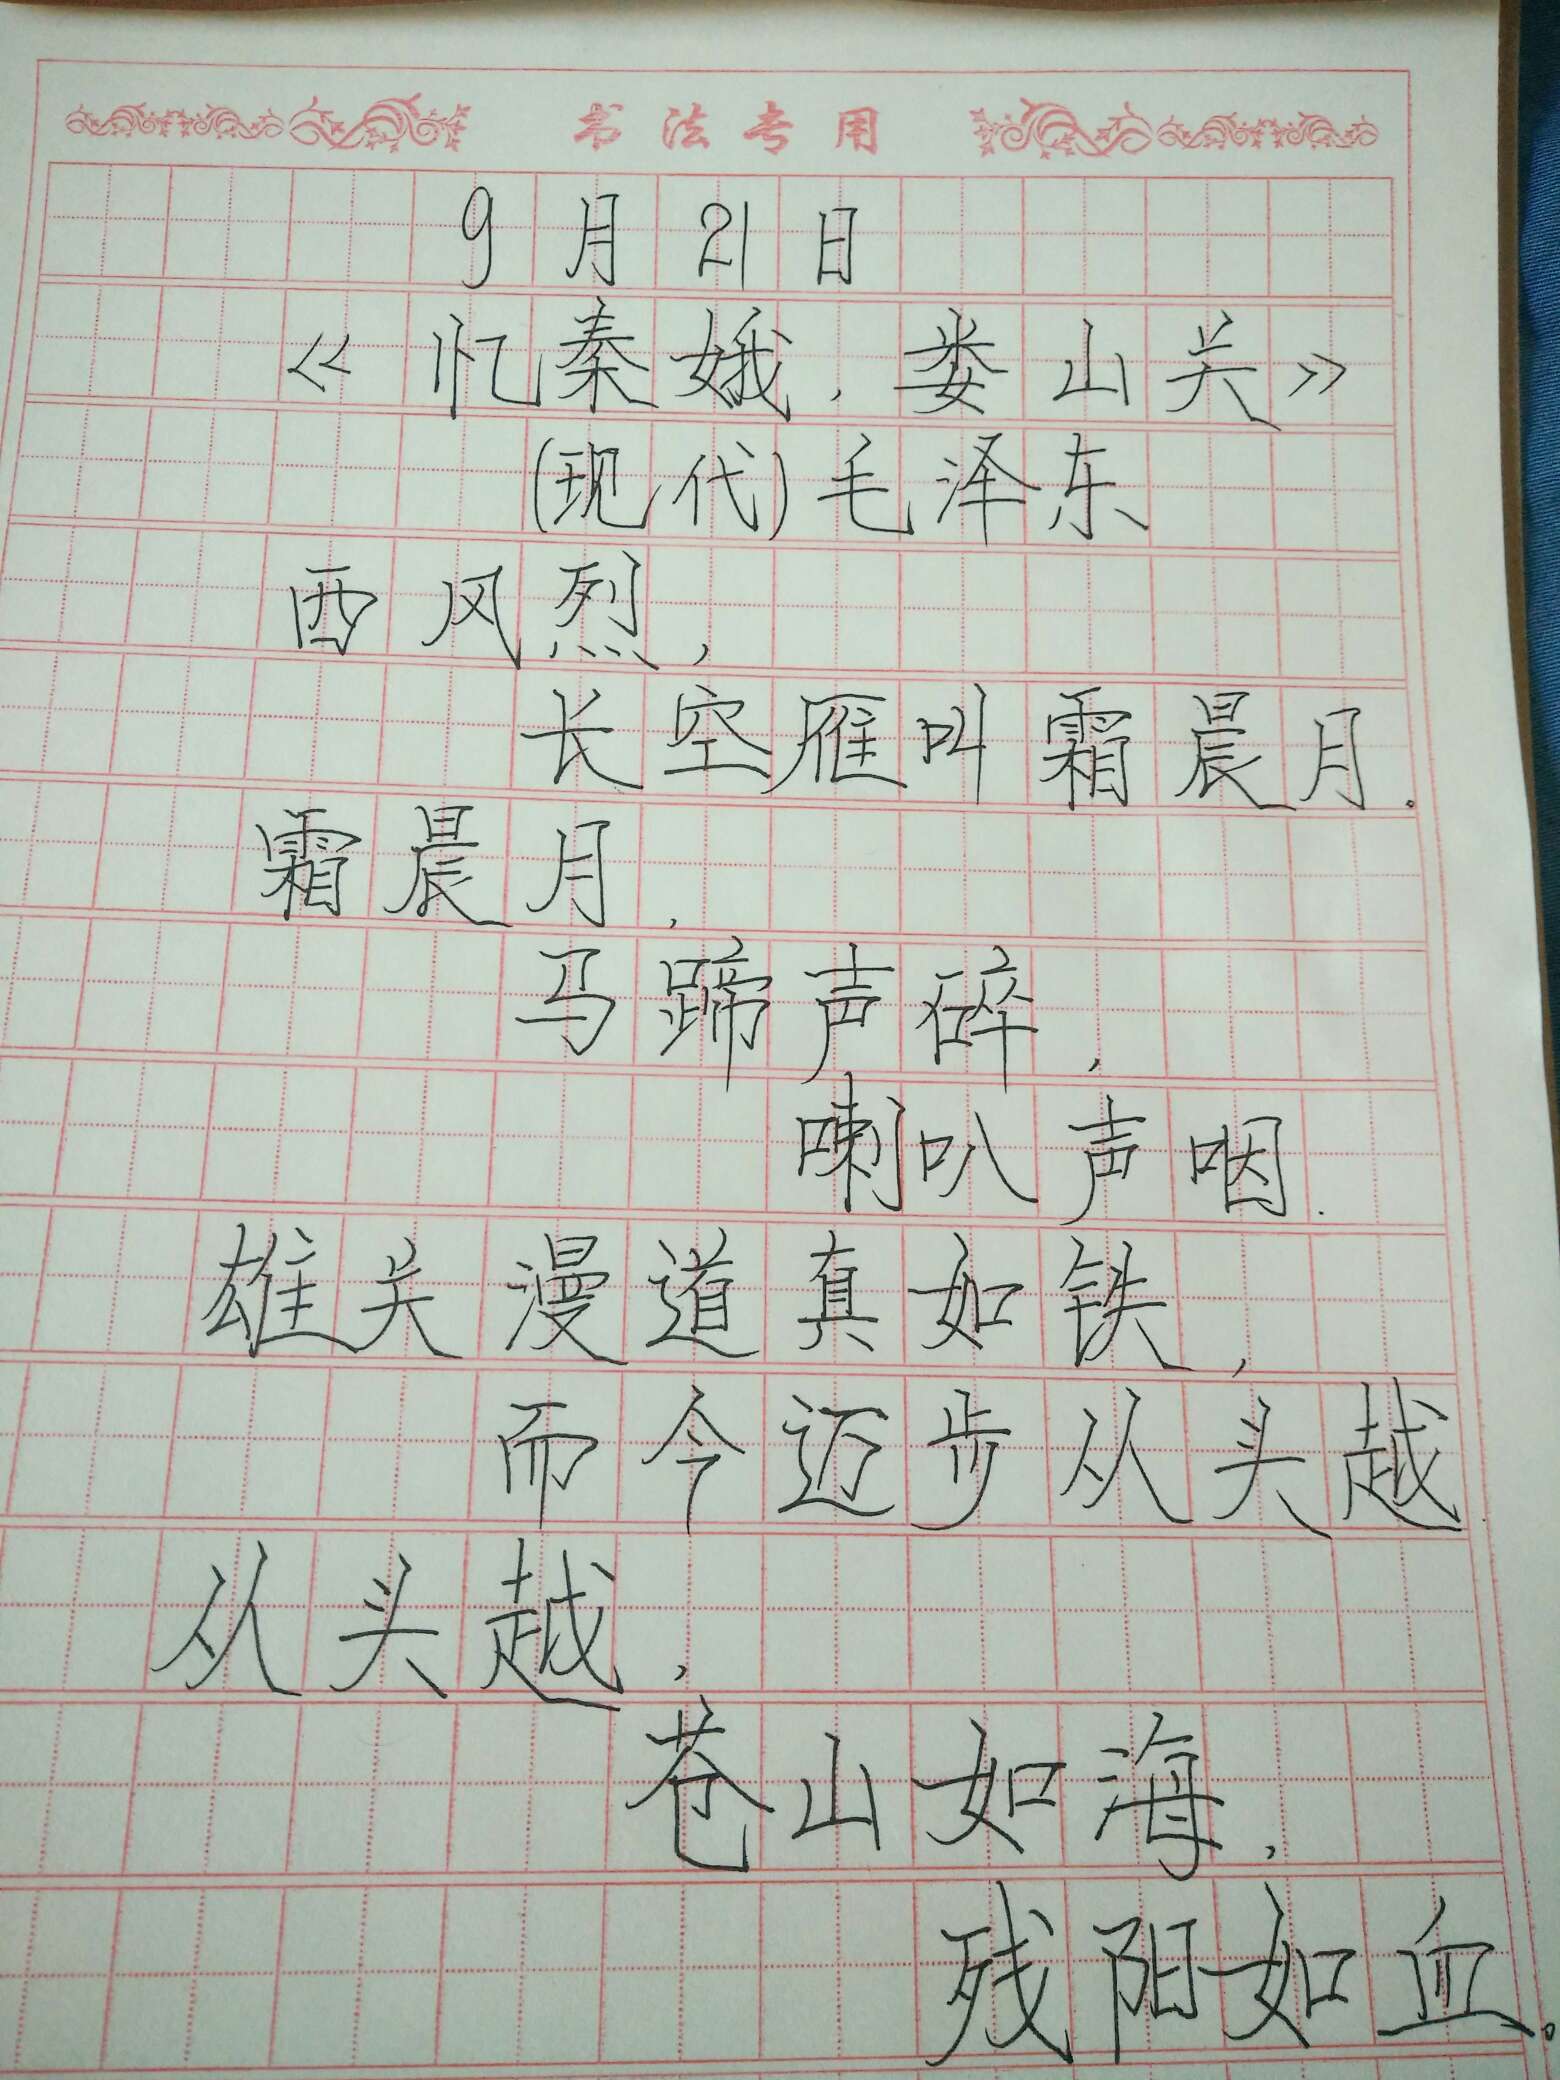 书法专用
9月21日
《忆秦娥.娄山关》
(现代)毛泽东
西风烈,
长空雁叫霜晨月.
霜晨月,
马蹄声碎,
喇叭声咽.
雄关漫道真如铁,
而今迈步从头越.
从头越,
苍山如海,
残阳如血。